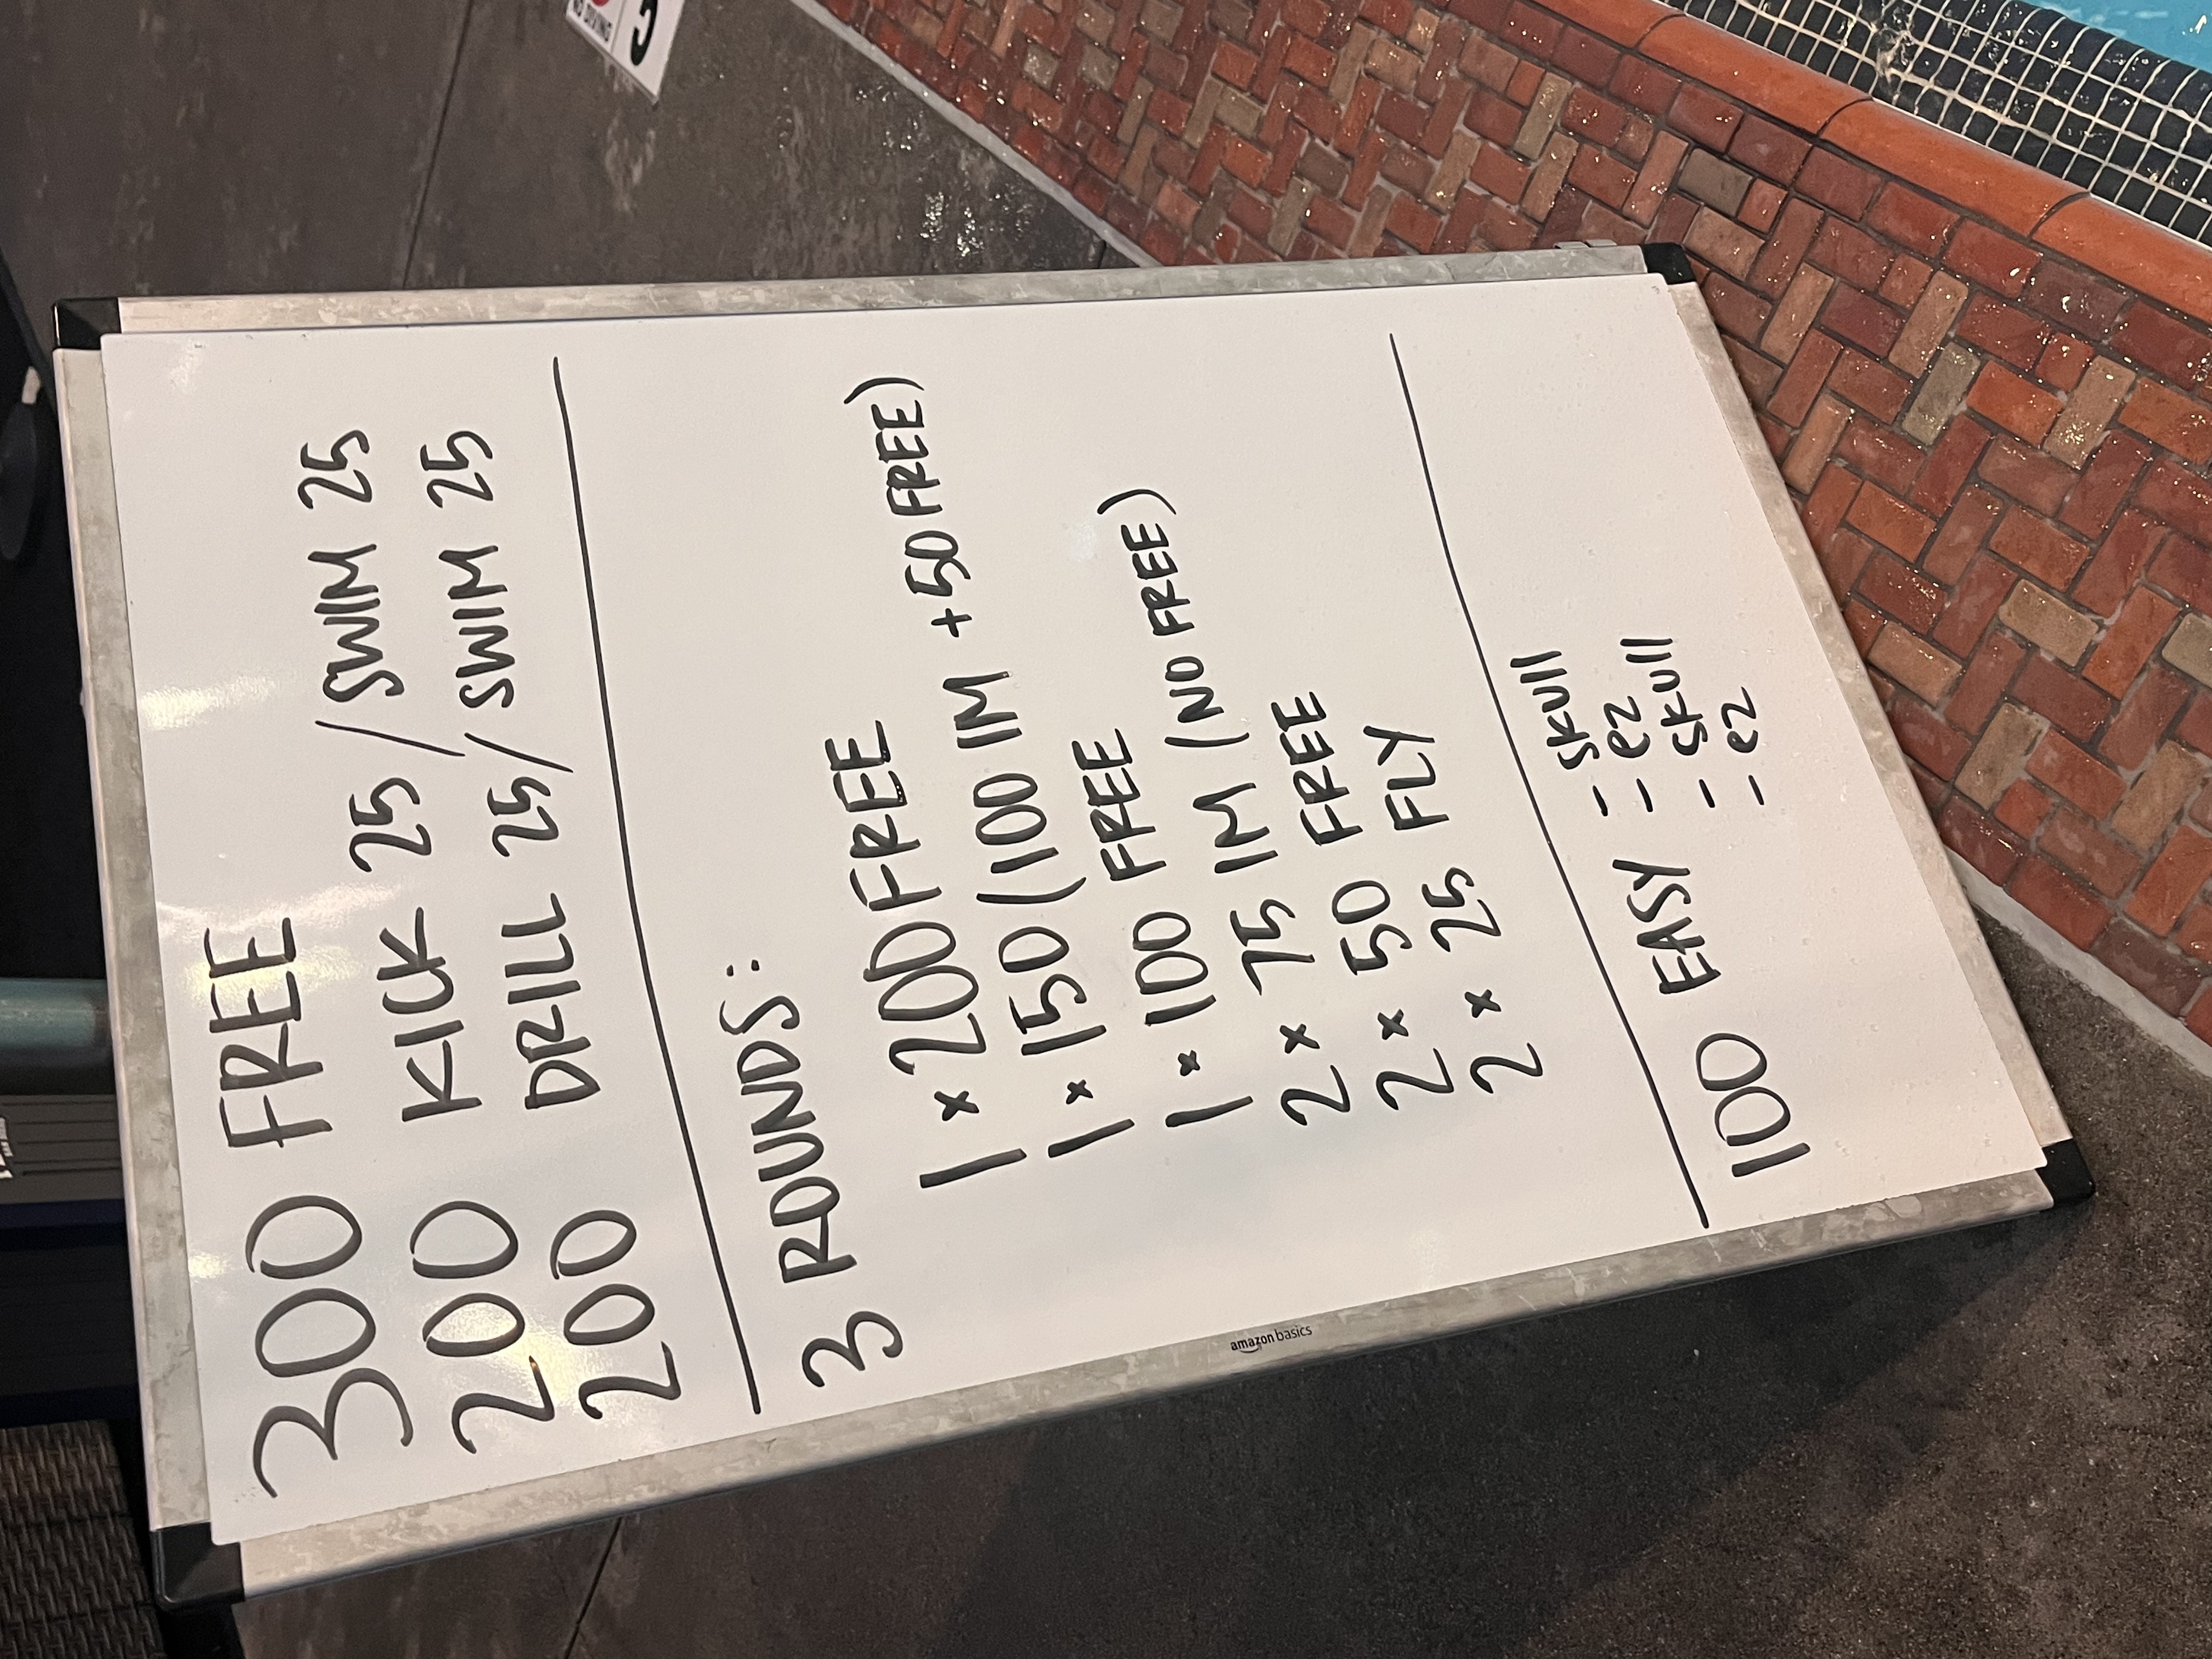 300 FREE
200 KICK 25 / SWIM 25
200 DRILL 25 / SWIM 25
3 ROUNDS:
1 x 200 FREE
1 x 150 (100 IM + 50 FREE)
1 x 100 FREE
2 x 75 IM (NO FREE)
2 x 50 FREE
2 x 25 FLY
100 EASY - skull
- ez
- skull
- ez
amazon basics
NO DIVING